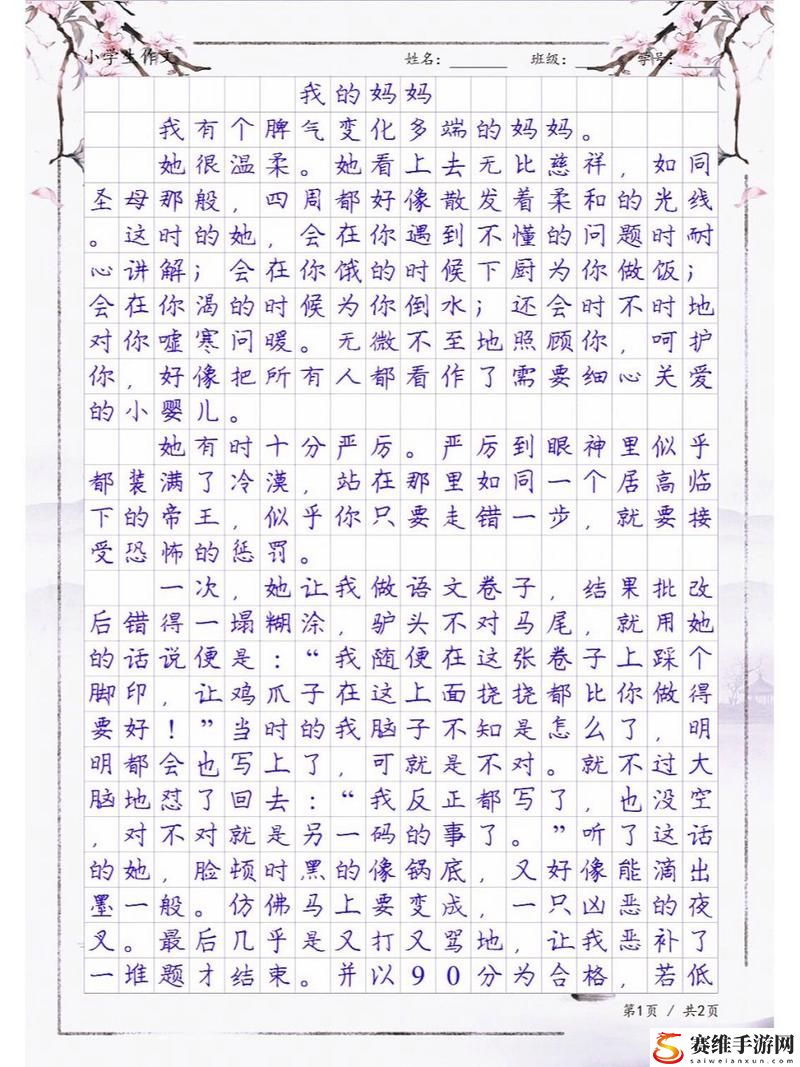 小学生作文
姓名：
班级：
学号：
我的妈妈
我有个脾气变化多端的妈妈。
她很温柔。她看上去无比慈祥，如同
圣母那般，四周都好像散发着柔和的光线
。这时的她，会在你遇到不懂的问题时耐
心讲解；会在你饿的时候下厨为你做饭；
会在你渴的时候为你倒水；还会时不时地
对你嘘寒问暖。无微不至地照顾你，呵护
你，好像把所有人都看作了需要细心关爱
的小婴儿。
她有时十分严厉。严厉到眼神里似乎
都装满了冷漠，站在那里如同一个居高临
下的帝王，似乎你只要走错一步，就要接
受恐怖的惩罚。
一次，她让我做语文卷子，结果批改
后错得一塌糊涂，驴头不对马尾，就用她
的话说便是：“我随便在这张卷子上踩个
脚印，让鸡爪子在这上面挠挠都比你做得
要好！”当时的我脑子不知是怎么了，明
明都会也写上了，可就是不对。就不过大
脑地怼了回去：“我反正都写了，也没空
，对不对就是另一码的事了。”听了这话
的她，脸顿时黑的像锅底，又好像能滴出
墨一般。仿佛马上要变成，一只凶恶的夜
叉。最后几乎是又打又骂地，让我恶补了
一堆题才结束。并以90分为合格，若低
第1页 / 共2页
赛维手游网
saiweianxun.com